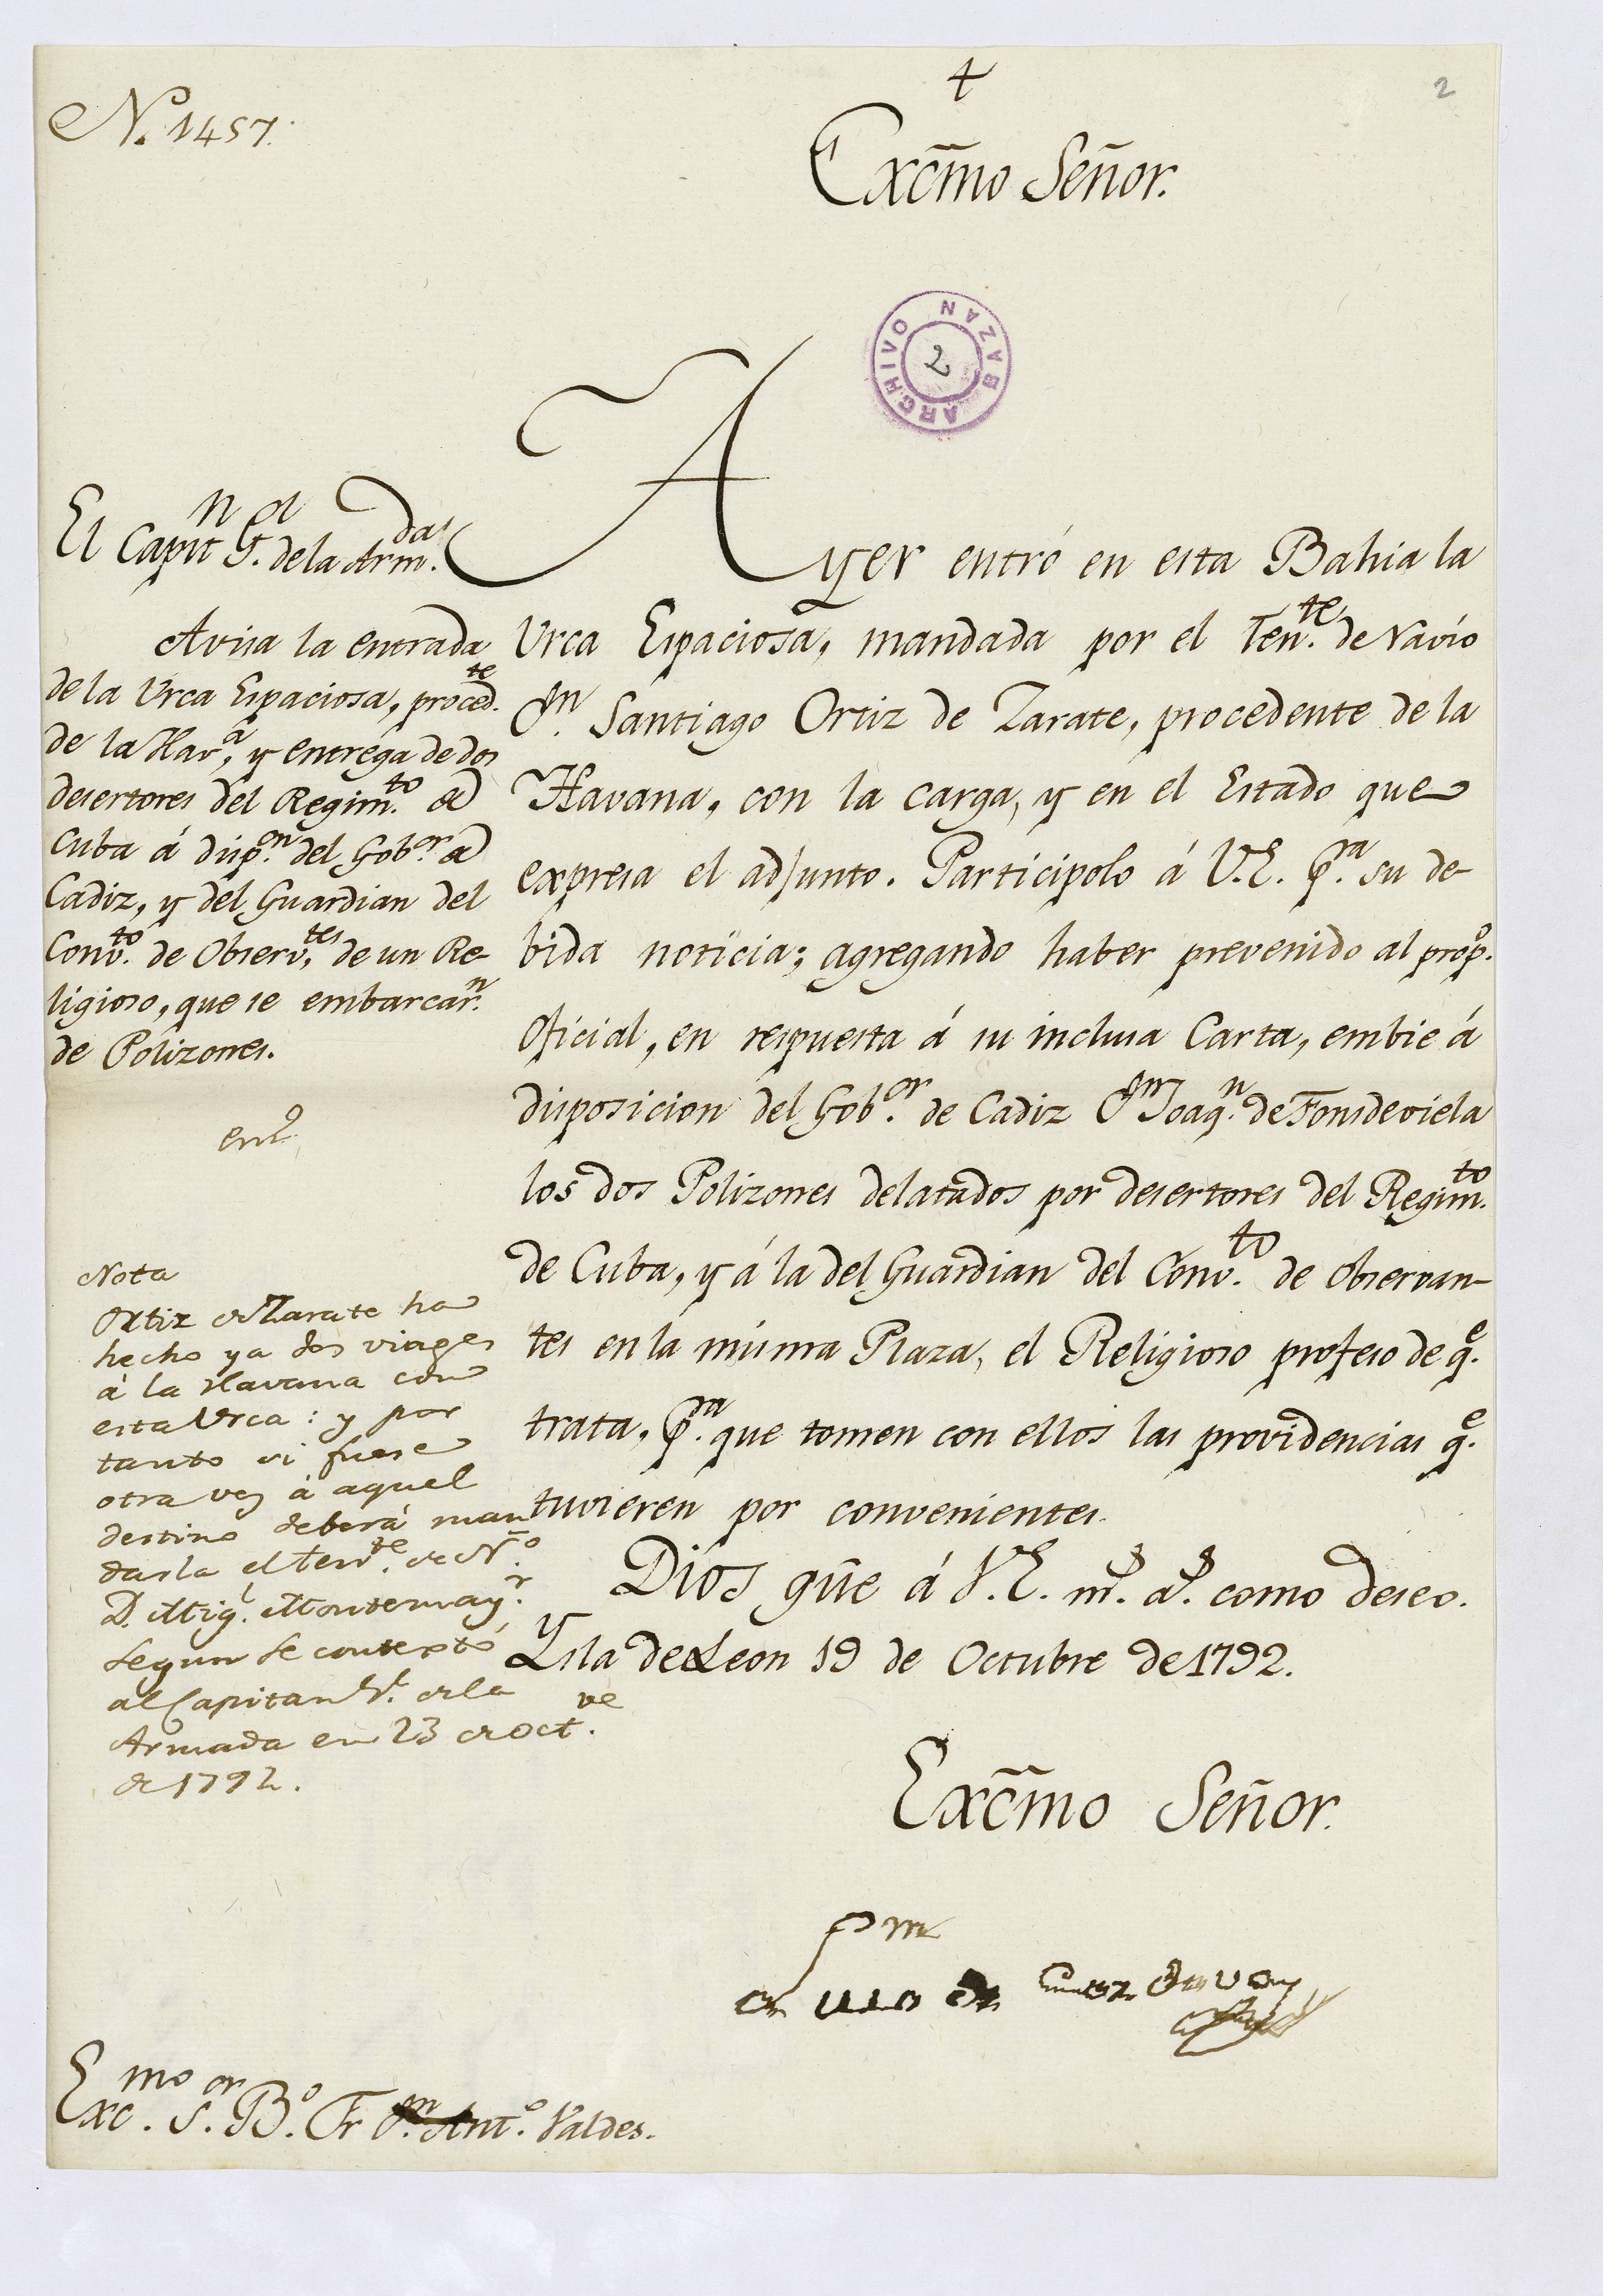 2
N.º 1457.
Excmo Señor.
ARCHIVO BAZAN
2
El Capitn Gl. de la Armda.
Avisa la entrada
de la Urca Espaciosa, procedte.
de la Hava, y entrega de dos
desertores del Regimto. de
Cuba á dispon. del Gobor. de
Cadiz, y del Guardian del
Convto. de Observtes, de un Re-
ligioso, que se embarcarn.
de Polizones.
Nota
Ortiz de Zarate ha
hecho ya dos viages
á la Havana con
esta Urca: y por
tanto si fuese
otra vez á aquel
destino deberá man
darla el tente. de No.
D. Migl. Montemayr.
segun se contextó
al Capitan Gl. de la
Armada en 23 de Octve.
de 1792.
Ayer entró en esta Bahia la
Urca Espaciosa, mandada por el Tente. de Navio
Dn. Santiago Ortiz de Zarate, procedente de la
Havana, con la carga, y en el Estado que
expresa el adjunto. Participolo á V.E. pra. su de-
bida noticia; agregando haber prevenido al propo.
Oficial, en respuesta á su inclusa Carta, embie á
disposicion del Gobor. de Cadiz Dn Joaqn. de Fonsdeviela
los dos Polizones delatados por desertores del Regimto.
de Cuba, y á la del Guardian del Convto. de Observan-
tes en la misma Plaza, el Religioso profeso de qe.
trata, pra. que tomen con ellos las providencias qe.
tuvieren por convenientes.
Dios gue á V.E. ms. as. como deseo.
Ysla de Leon 19 de Octubre de 1792.
Excmo Señor.
Excmo. Sor. Bo. Fr Dn. Anto. Valdes.